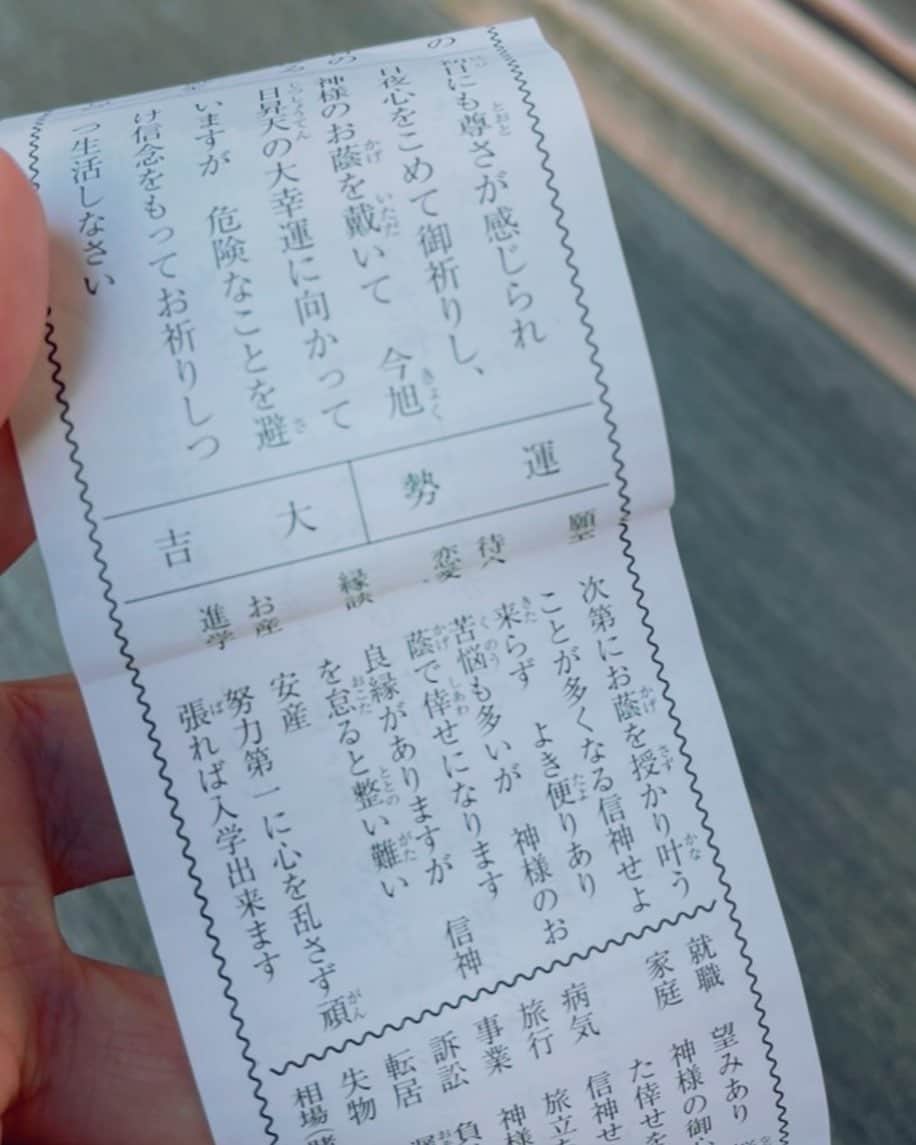 にも尊さが感じられ
日夜心をこめて御祈りし、
神様のお蔭を戴いて 今旭
日昇天の大幸運に向かって
いますが 危険なことを避
け信念をもってお祈りしつ
つ生活しなさい
運勢
大吉
願望 次第にお蔭を授かり叶う
ことが多くなる信神せよ
待人 来らず よき便りあり
恋愛 苦悩も多いが 神様のお
蔭で倖せになります
縁談 良縁がありますが 信神
を怠ると整い難い
お産 安産
進学 努力第一に心を乱さず頑
張れば入学出来ます
就職 望みあり
家庭 神様の御
た倖せを
病気 信神せ
旅行 旅立
事業 神様
訴訟 負
転居
失物
相場